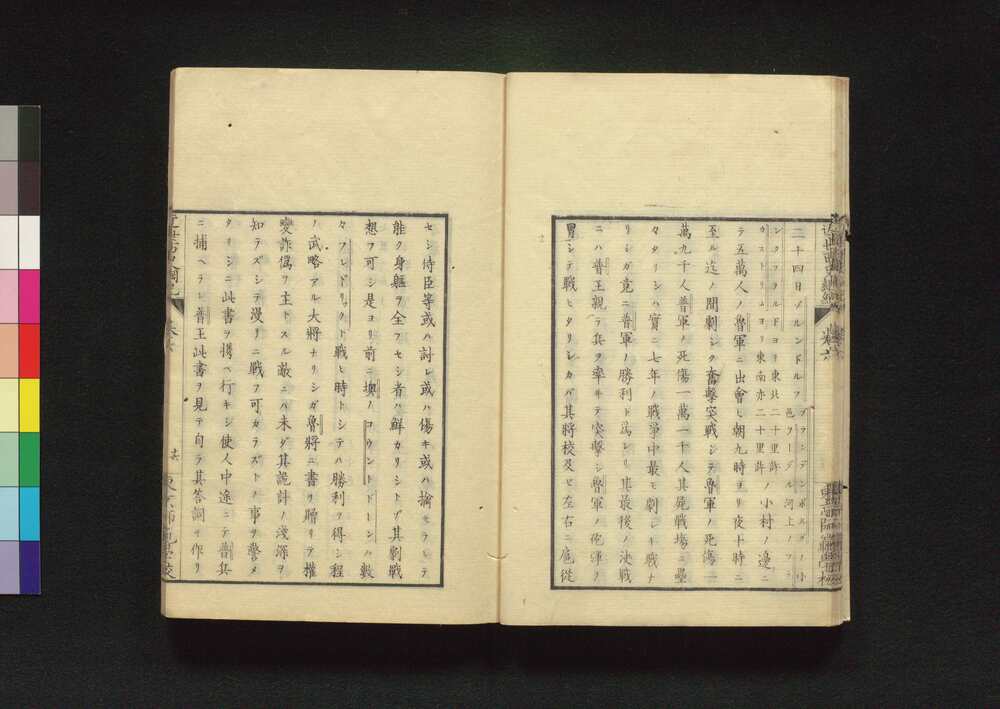 二十四日ゾルンドルフ ブランデンボルグノ小邑ヲーデル河上ノフラ
ンクフヲルドヨリ東北二十里許
カストリムヨリ東南亦二十里許 ノ小村ノ邊ニ
ラ五萬人ノ魯軍ニ出會ヒ朝九時ヨリ夜十時ニ
至ル迄ノ間劇シク奮擊突戰シテ魯軍ノ死傷一
萬九千人普軍ノ死傷一萬一千人其屍戰場ニ疊
々タリシハ實ニ七年ノ戰爭中最モ劇シキ戰ナ
リシガ竟ニ普軍ノ勝利ト爲レリ其最後ノ決戰
ニハ普王親ラ兵ヲ率ヰテ突擊シ魯軍ノ砲彈ヲ
冒シテ戰ヒタリシカバ其將校及ヒ左右ニ扈從
セシ侍臣等或ハ討レ或ハ傷キ或ハ擒セラレテ
能ク身軀ヲ全フセシ者ハ鮮カリシトゾ其劇戰
想フ可シ是ヨリ前ニ墺ノコウントドーンハ數
々フレドリックト戰ヒ時トシテハ勝利ヲ得シ程
ノ武略アル大將ナリシガ魯將ニ書ヲ贈リテ權
變詐僞ヲ主トスル敵ニハ未ダ其詭計ノ淺深ヲ
知テズシテ漫リニ戰フ可カラズトノ事ヲ警メ
タリシニ此書ヲ携ヘ行キシ使人中途ニテ普兵
ニ捕ヘラレ普王此書ヲ見テ自ラ其答詞ヲ作リ
卷六